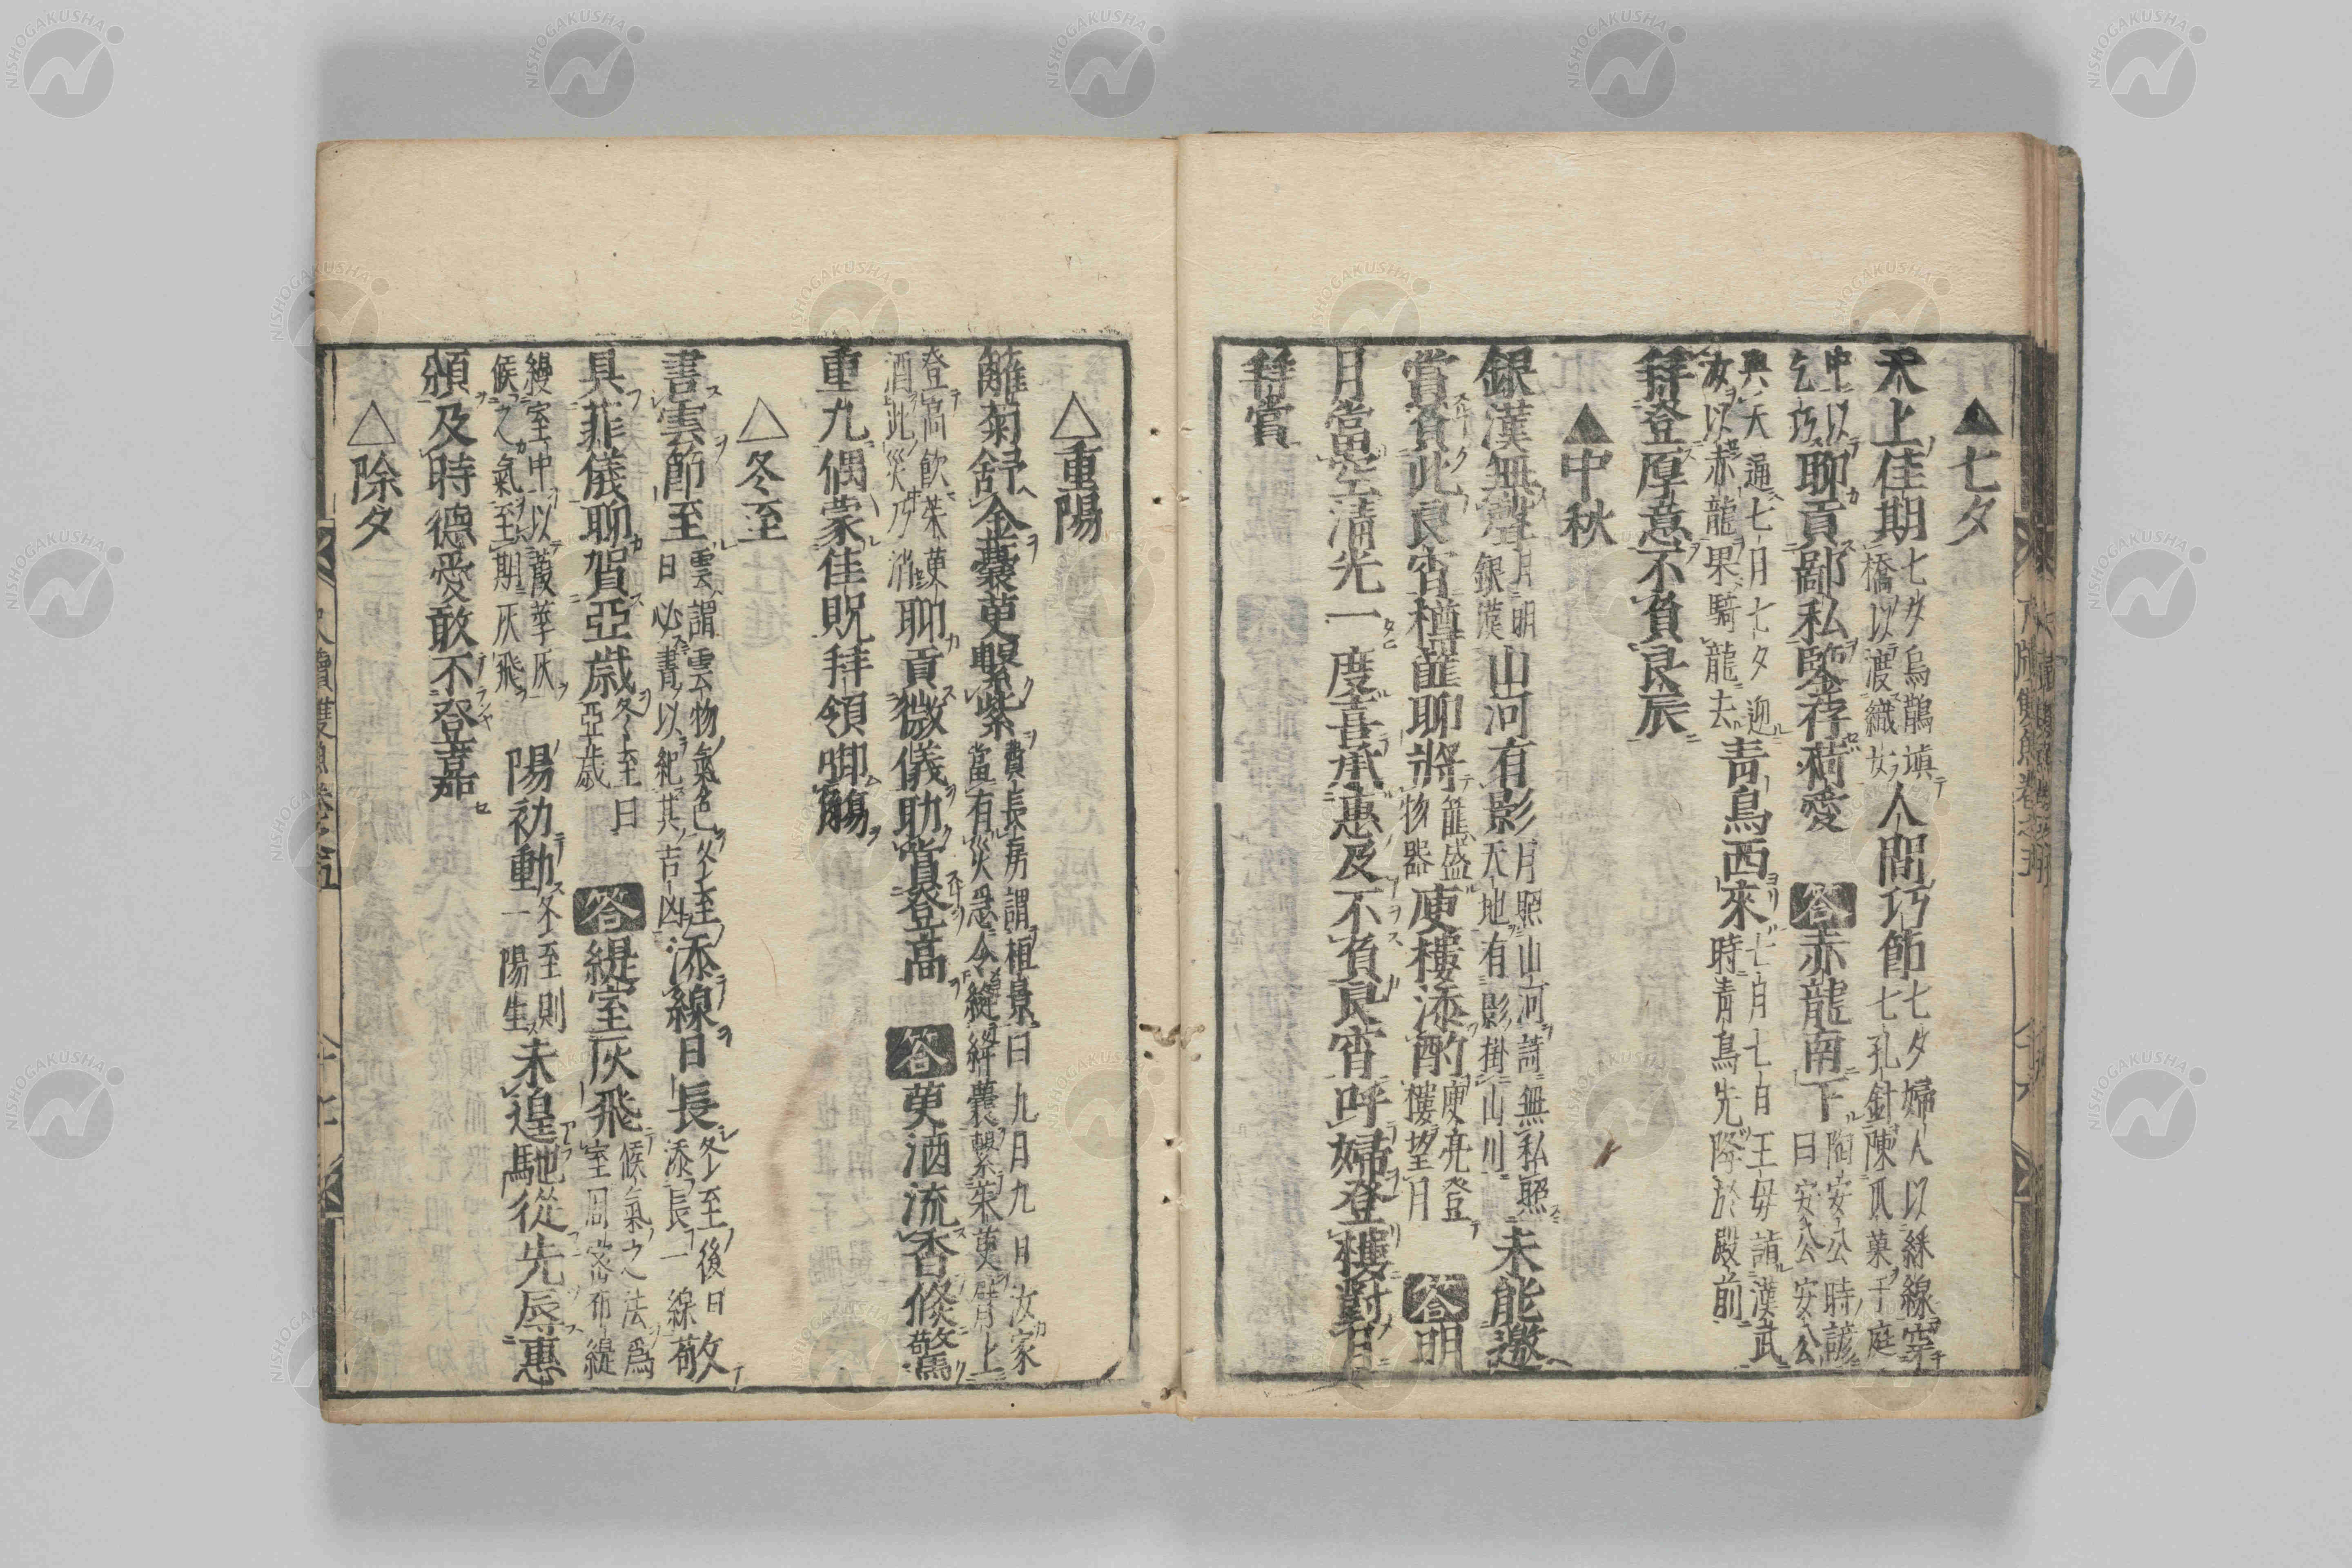 ▲七夕
天上佳期七夕烏鵲塡橋以渡織女人間巧節七夕婦人以綵線穿七孔針陳爪菓于庭
中以乞巧聊貢鄙私鑒荐荷愛 答赤龍南下陶安公時諺曰安公安公
與天通七月七夕迎汝以赤龍果騎龍去青鳥西來七月七日王母請漢武時青鳥先降於殿前
拜登厚意不負良辰
▲中秋
銀漢無聲月明銀漢山河有影月照山河謌無私照天地有影掛山川未能邀
賞負此良宵樽韮聊將籠盛物器庾樓添酌庾亮登樓望月 答明
月當空淸光一度喜承惠及不負良宵呼婦登樓對月
拜嘗
△重陽
籬菊舒金囊萸繫紫費長房謂桓景曰九日九日汝家當有災急令縫絳囊繫茱萸臂上
登高飮茱萸酒此災乃消聊貢微儀助賞登高 答萸酒流香倐驚
重九偶蒙佳貺拜領卿觴
△冬至
書雲節至雲謂雲物氣色冬至日必書以紀其吉凶添線日長冬至後日添長一線敬
具菲儀聊賀亞歲冬至日亞歲 答緹室灰飛候氣之法爲室周密布緹
縵室中以葭莩灰候之氣至期灰飛陽初動冬至則一陽生未遑馳從先辱惠
頒及時德愛敢不登嘉
△除夕
尺牘雙魚卷之五 十七